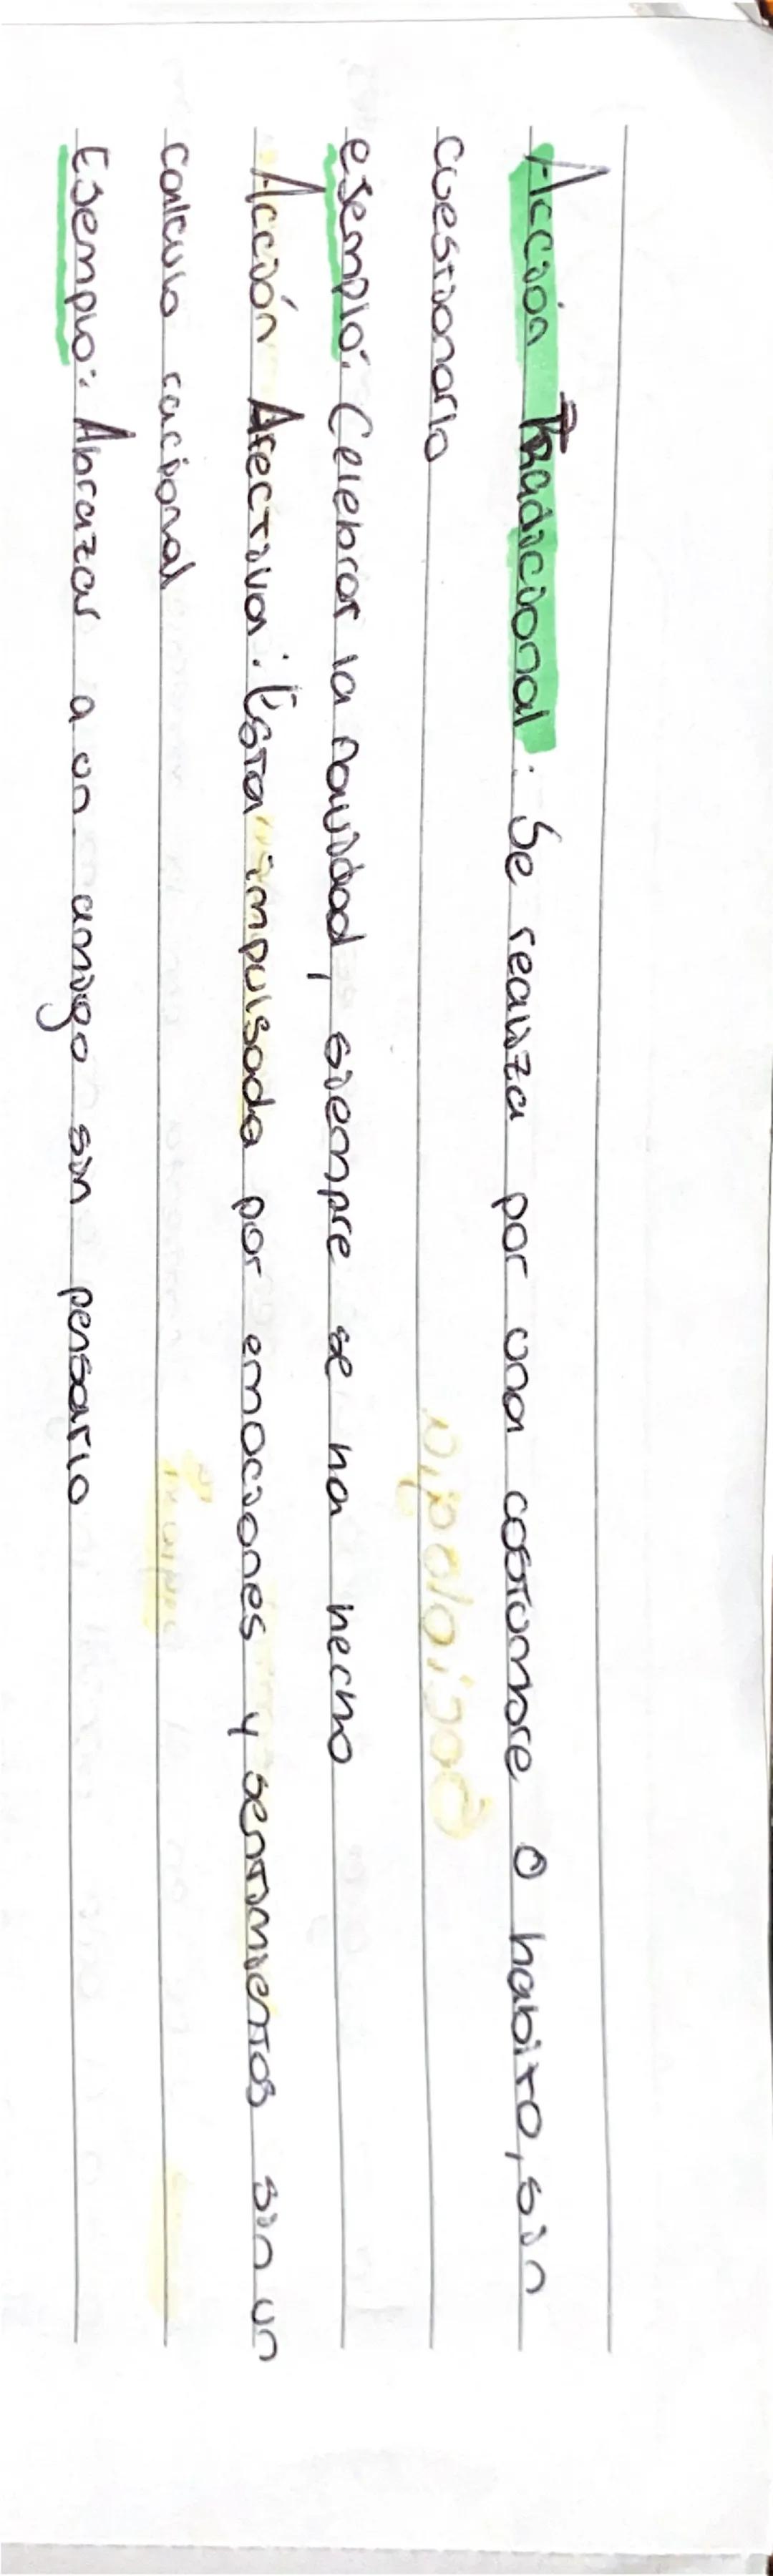 Acción Tradicional: Se realiza por una costumbre o habito, sin
cuestionarlo
ejemplo: Celebrar la navidad, siempre se ha hecho
Acción Afectiva: Esta impulsada por emociones y sentimientos sin un
calculo racional
Ejemplo: Abrazar a un amigo sin pensarlo